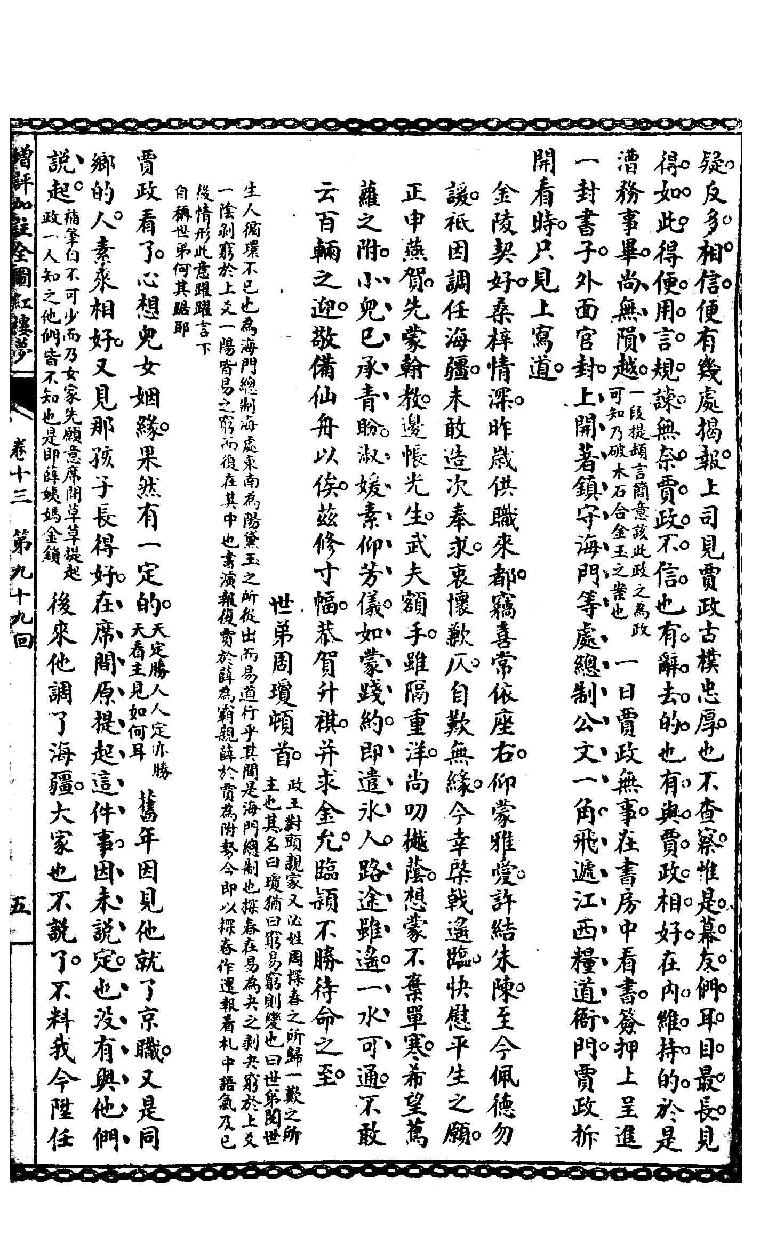 疑反多相信便有幾處揭報上司見賈政古樸忠厚也不查察惟是幕友們耳目最長見
得如此得便用言規諫無奈賈政不信也有辭去的也有與賈政相好在內維持的於是
漕務事畢尚無隕越一段提頭言簡意該此政之為政可知乃破木石合金玉之業也一日賈政無事在書房中看書簽押上呈進
一封書子外面官封上開著鎮守海門等處總制公文一角飛遞江西糧道衙門賈政拆
開看時只見上寫道
金陵契好桑梓情深昨歲供職來都竊喜常依座右仰蒙雅愛許結朱陳至今佩德勿
諼祗因調任海疆未敢造次奉求衷懷歉仄自歎無緣今幸棨戟遙臨快慰平生之願
正申燕賀先蒙翰教邊帳光生武夫額手雖隔重洋尚叨樾蔭想蒙不棄單寒希望蔦
蘿之附小兒已承青盼淑媛素仰芳儀如蒙踐約即遣冰人路途雖遙一水可通不敢
云百輛之迎敬備仙舟以俟茲修寸幅恭賀升祺并求金允臨潁不勝待命之至
世弟周瓊頓首政王對頭親家又沁姓周探春之所歸一歎之所主也其名曰瓊猶曰窮易窮則變也曰世弟閱世
生人獨環不已也為海門總制海處東南為陽黛玉之所從出而易道行乎其間是海門總制也探春在易為夬之剥夬窮於上爻
一陰剥窮於上爻一陽皆易之窮而復在其中也書演報復賈於薛為霸親薛於賈為附勢今即以探春作還報看札中語氣及已
後情形此意躍躍言下
自稱世弟何其踞耶
賈政看了心想兒女姻緣果然有一定的天定勝人人定亦勝天看主見如何耳舊年因見他就了京職又是同
鄉的人素來相好又見那孩子長得好在席間原提起這件事因未說定也沒有與他們
說起補筆自不可少而乃女家先願意席間草草提起政一人知之他們皆不知也是即薛姨媽金鎖後來他調了海疆大家也不說了不料我今陞任
增評加註全圖紅樓夢
卷十三　第九十九回
五